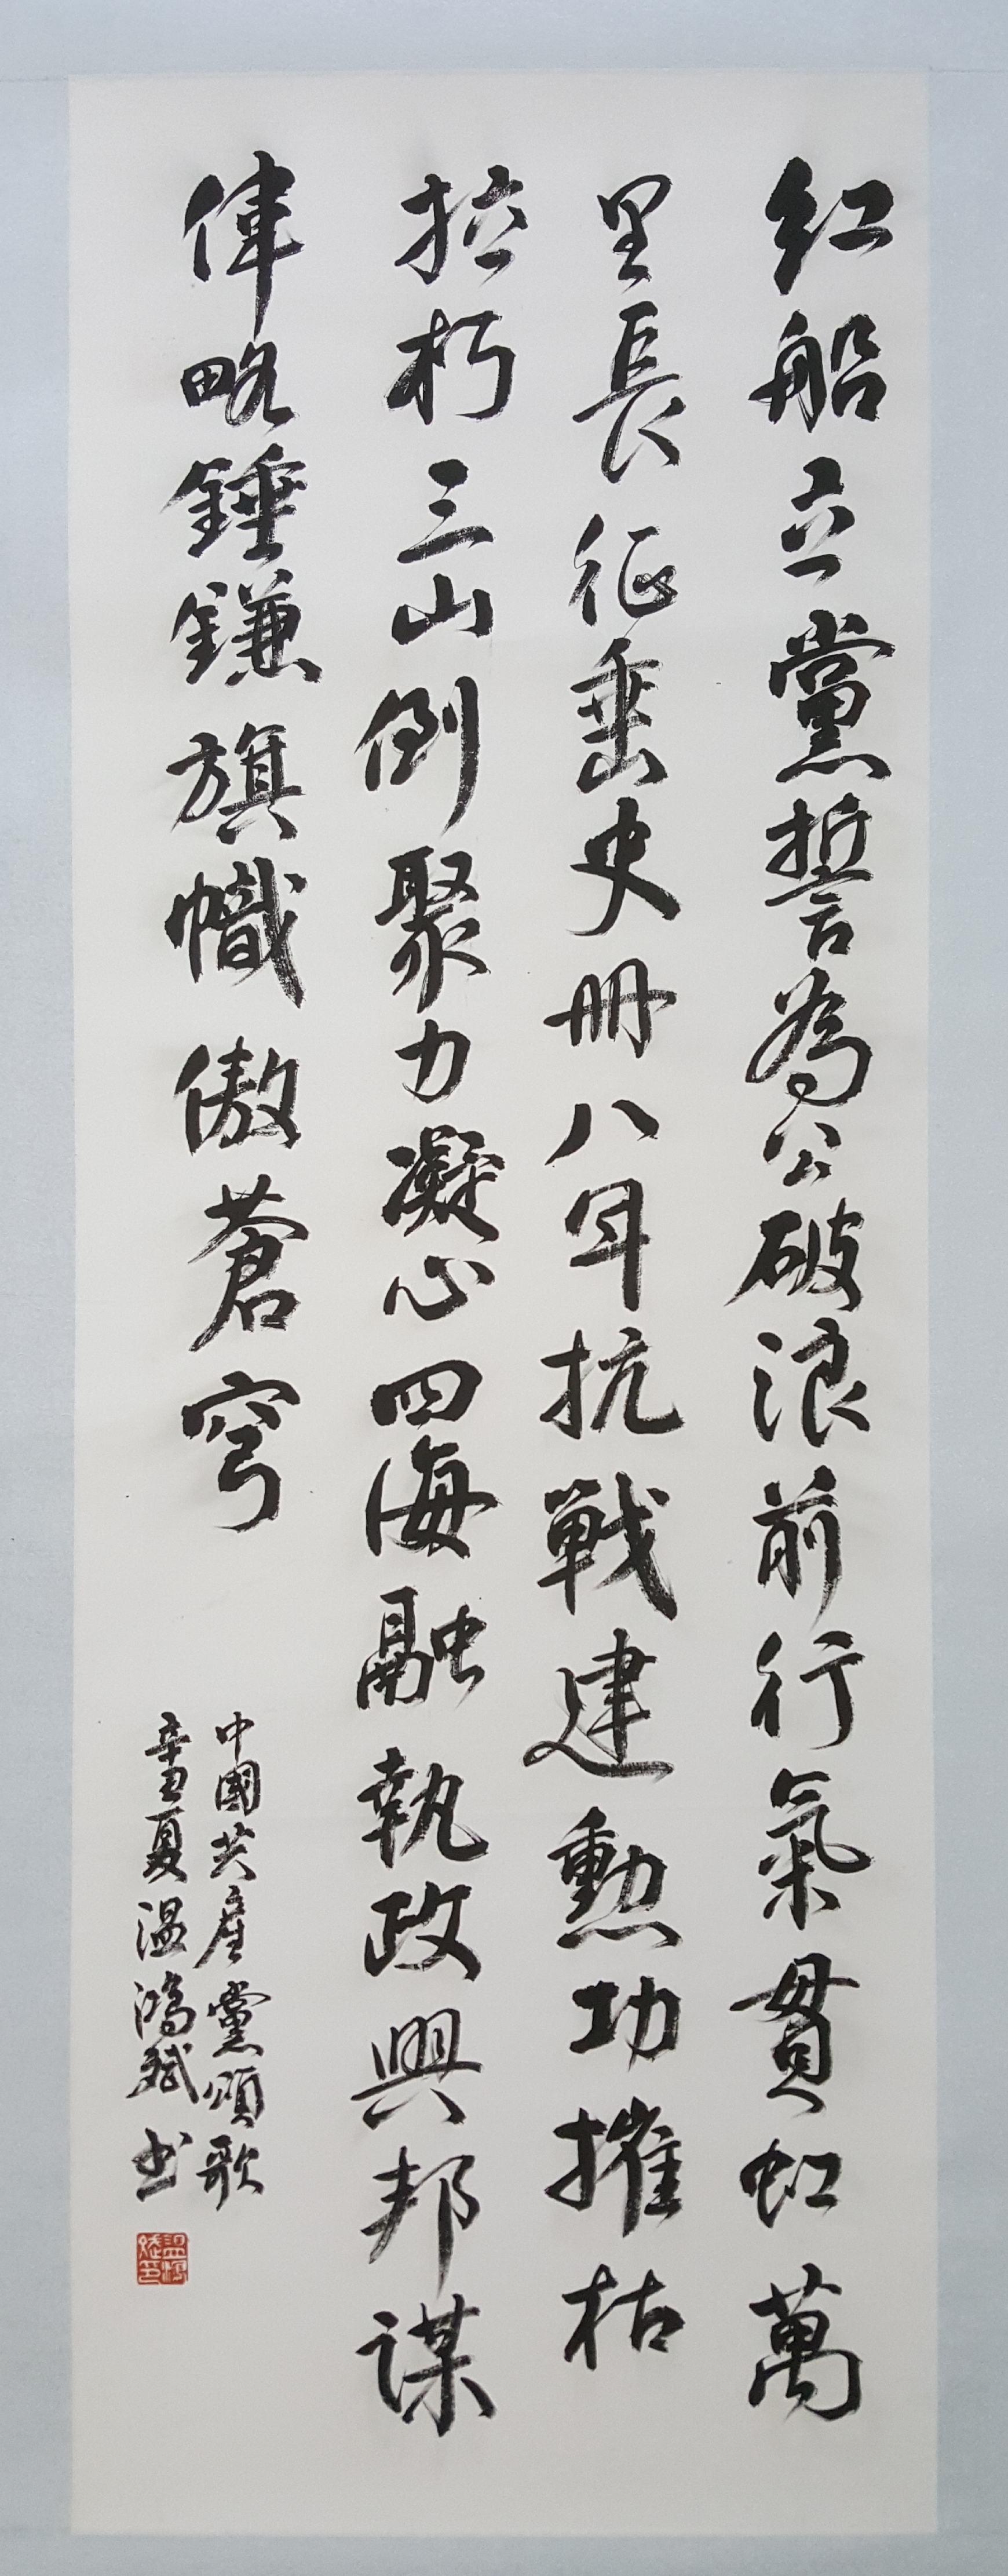 紅船立黨誓為公破浪前行氣貫虹萬
里長征垂史冊八年抗戰建勳功摧枯
拉朽三山倒聚力凝心四海融執政興邦謀
偉略錘鎌旗幟傲蒼穹
中國共產黨頌歌
辛丑夏溫鴻斌书